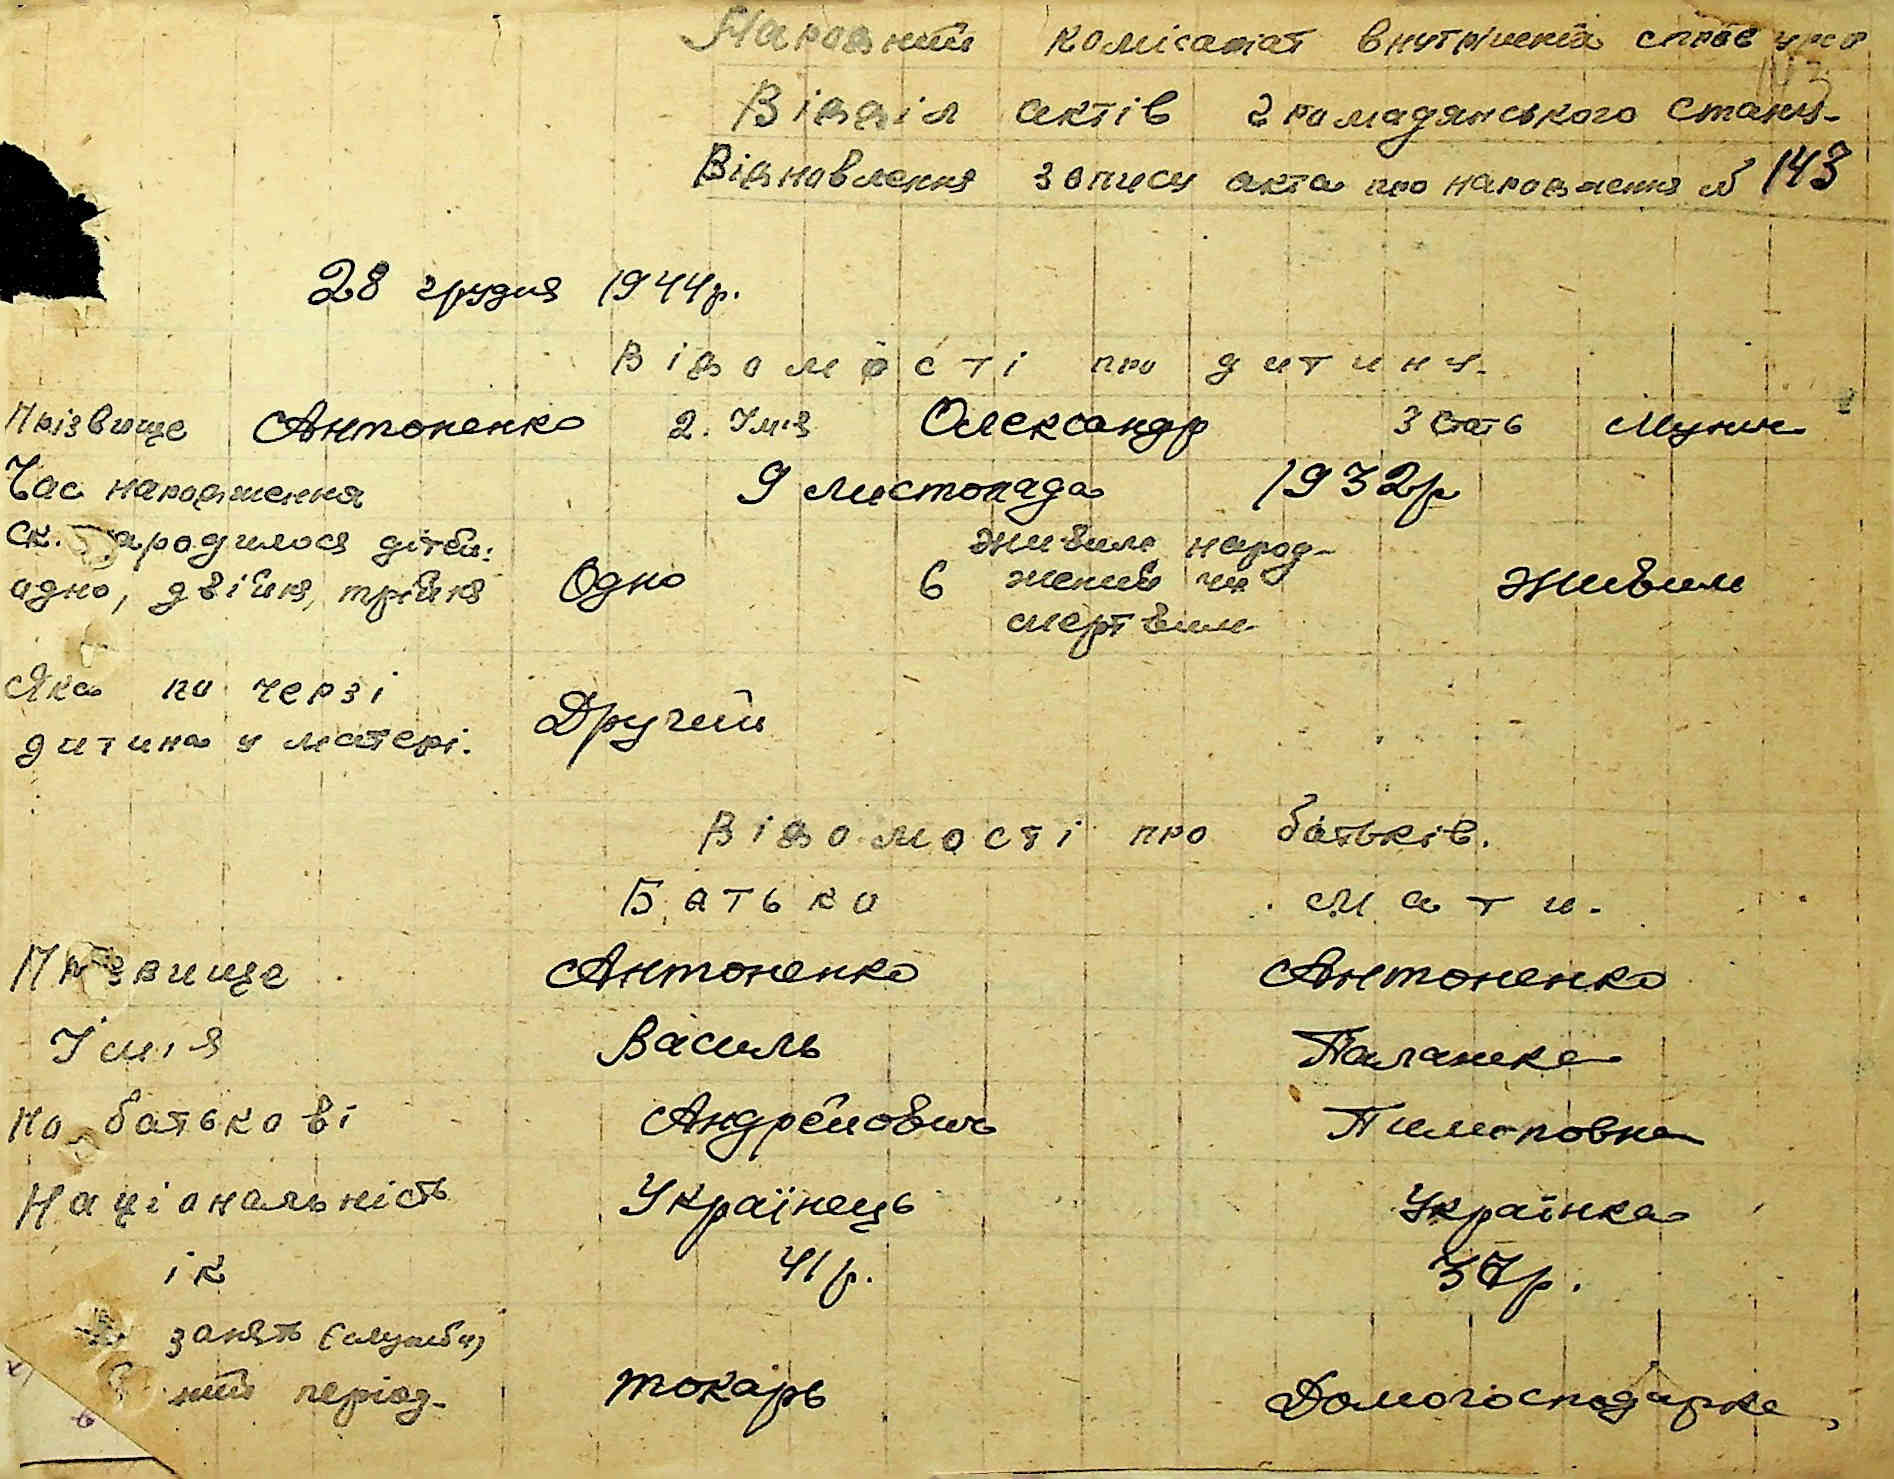 Народний комісаріат внутрішніх справ УРСР
Відділ актів громадянського стану.
Відновлення запису акта про народження № 143
28 грудня 1944р.
Відомості про дитину.
Прізвище Антоненко 2. Ім'я Олександр 3 Стать Мужич
Час народження 9 листопада 1932р
ск. народилося дітей: живим народ-
одно, двійня, трійня Одно 6 жений чи Живим
мертвим
Яка по черзі
дитина у матері. Другий
Відомості про батьків.
Батько Мати.
Прізвище Антоненко Антоненко
Ім'я Василь Палашка
по батькові Андрейович Пилиповна
Національність Українець Українка
ік 41р. 37р.
занять (служби)
ний період. токарь Домогосподарка,